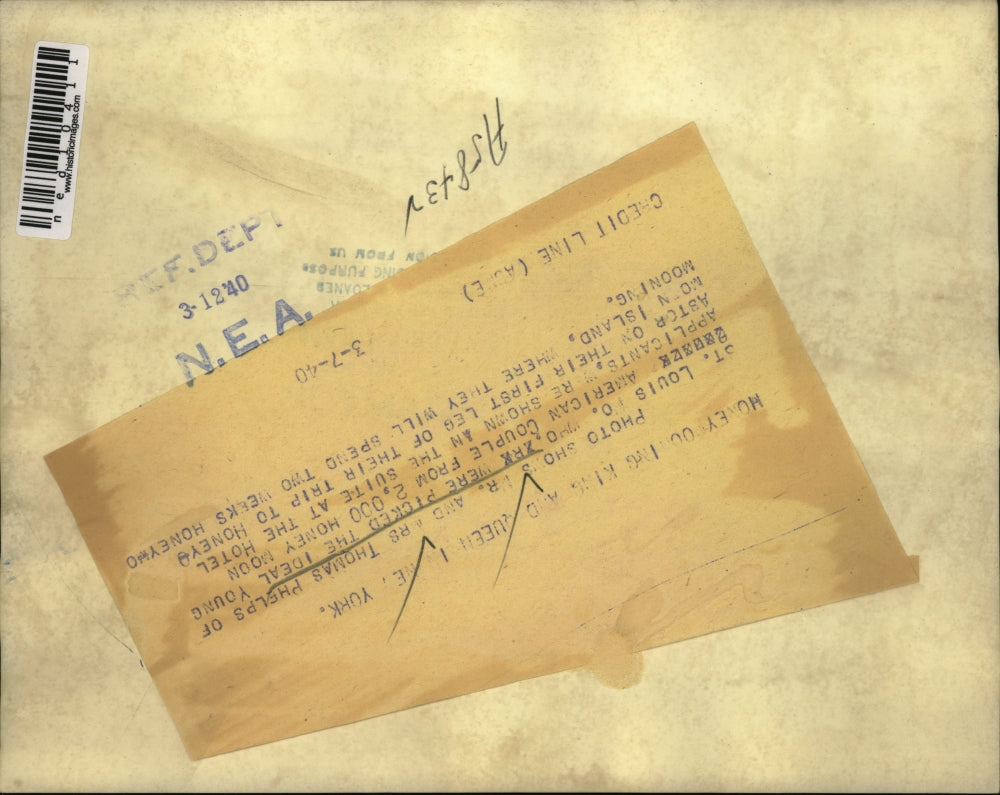 ned 10411
www.historicimages.com
A5843N
REF. DEPT
3-12'40
N.E.A.
LOANED
ING PURPOSE
ION FROM US
KING QUEEN YORK.
PHOTO SHOWS MR. AND MRS THOMAS PHELPS OF
ST. LOUIS MO. WHO XRK WERE PICKED THE IDEAL YOUNG
AMERICAN COUPLE FROM 2,000 HONEY MOON
APPLICANTS, RE SHOWN AN THE SUITE AT THE HOTEL
ASTOR ON THEIR FIRST LEG OF THEIR TRIP TO HONEY
MO N ISLAND, WHERE THEY WILL SPEND TWO WEEKS HONEY
MOONING.
CREDIT LINE (ACME) 3-7-40